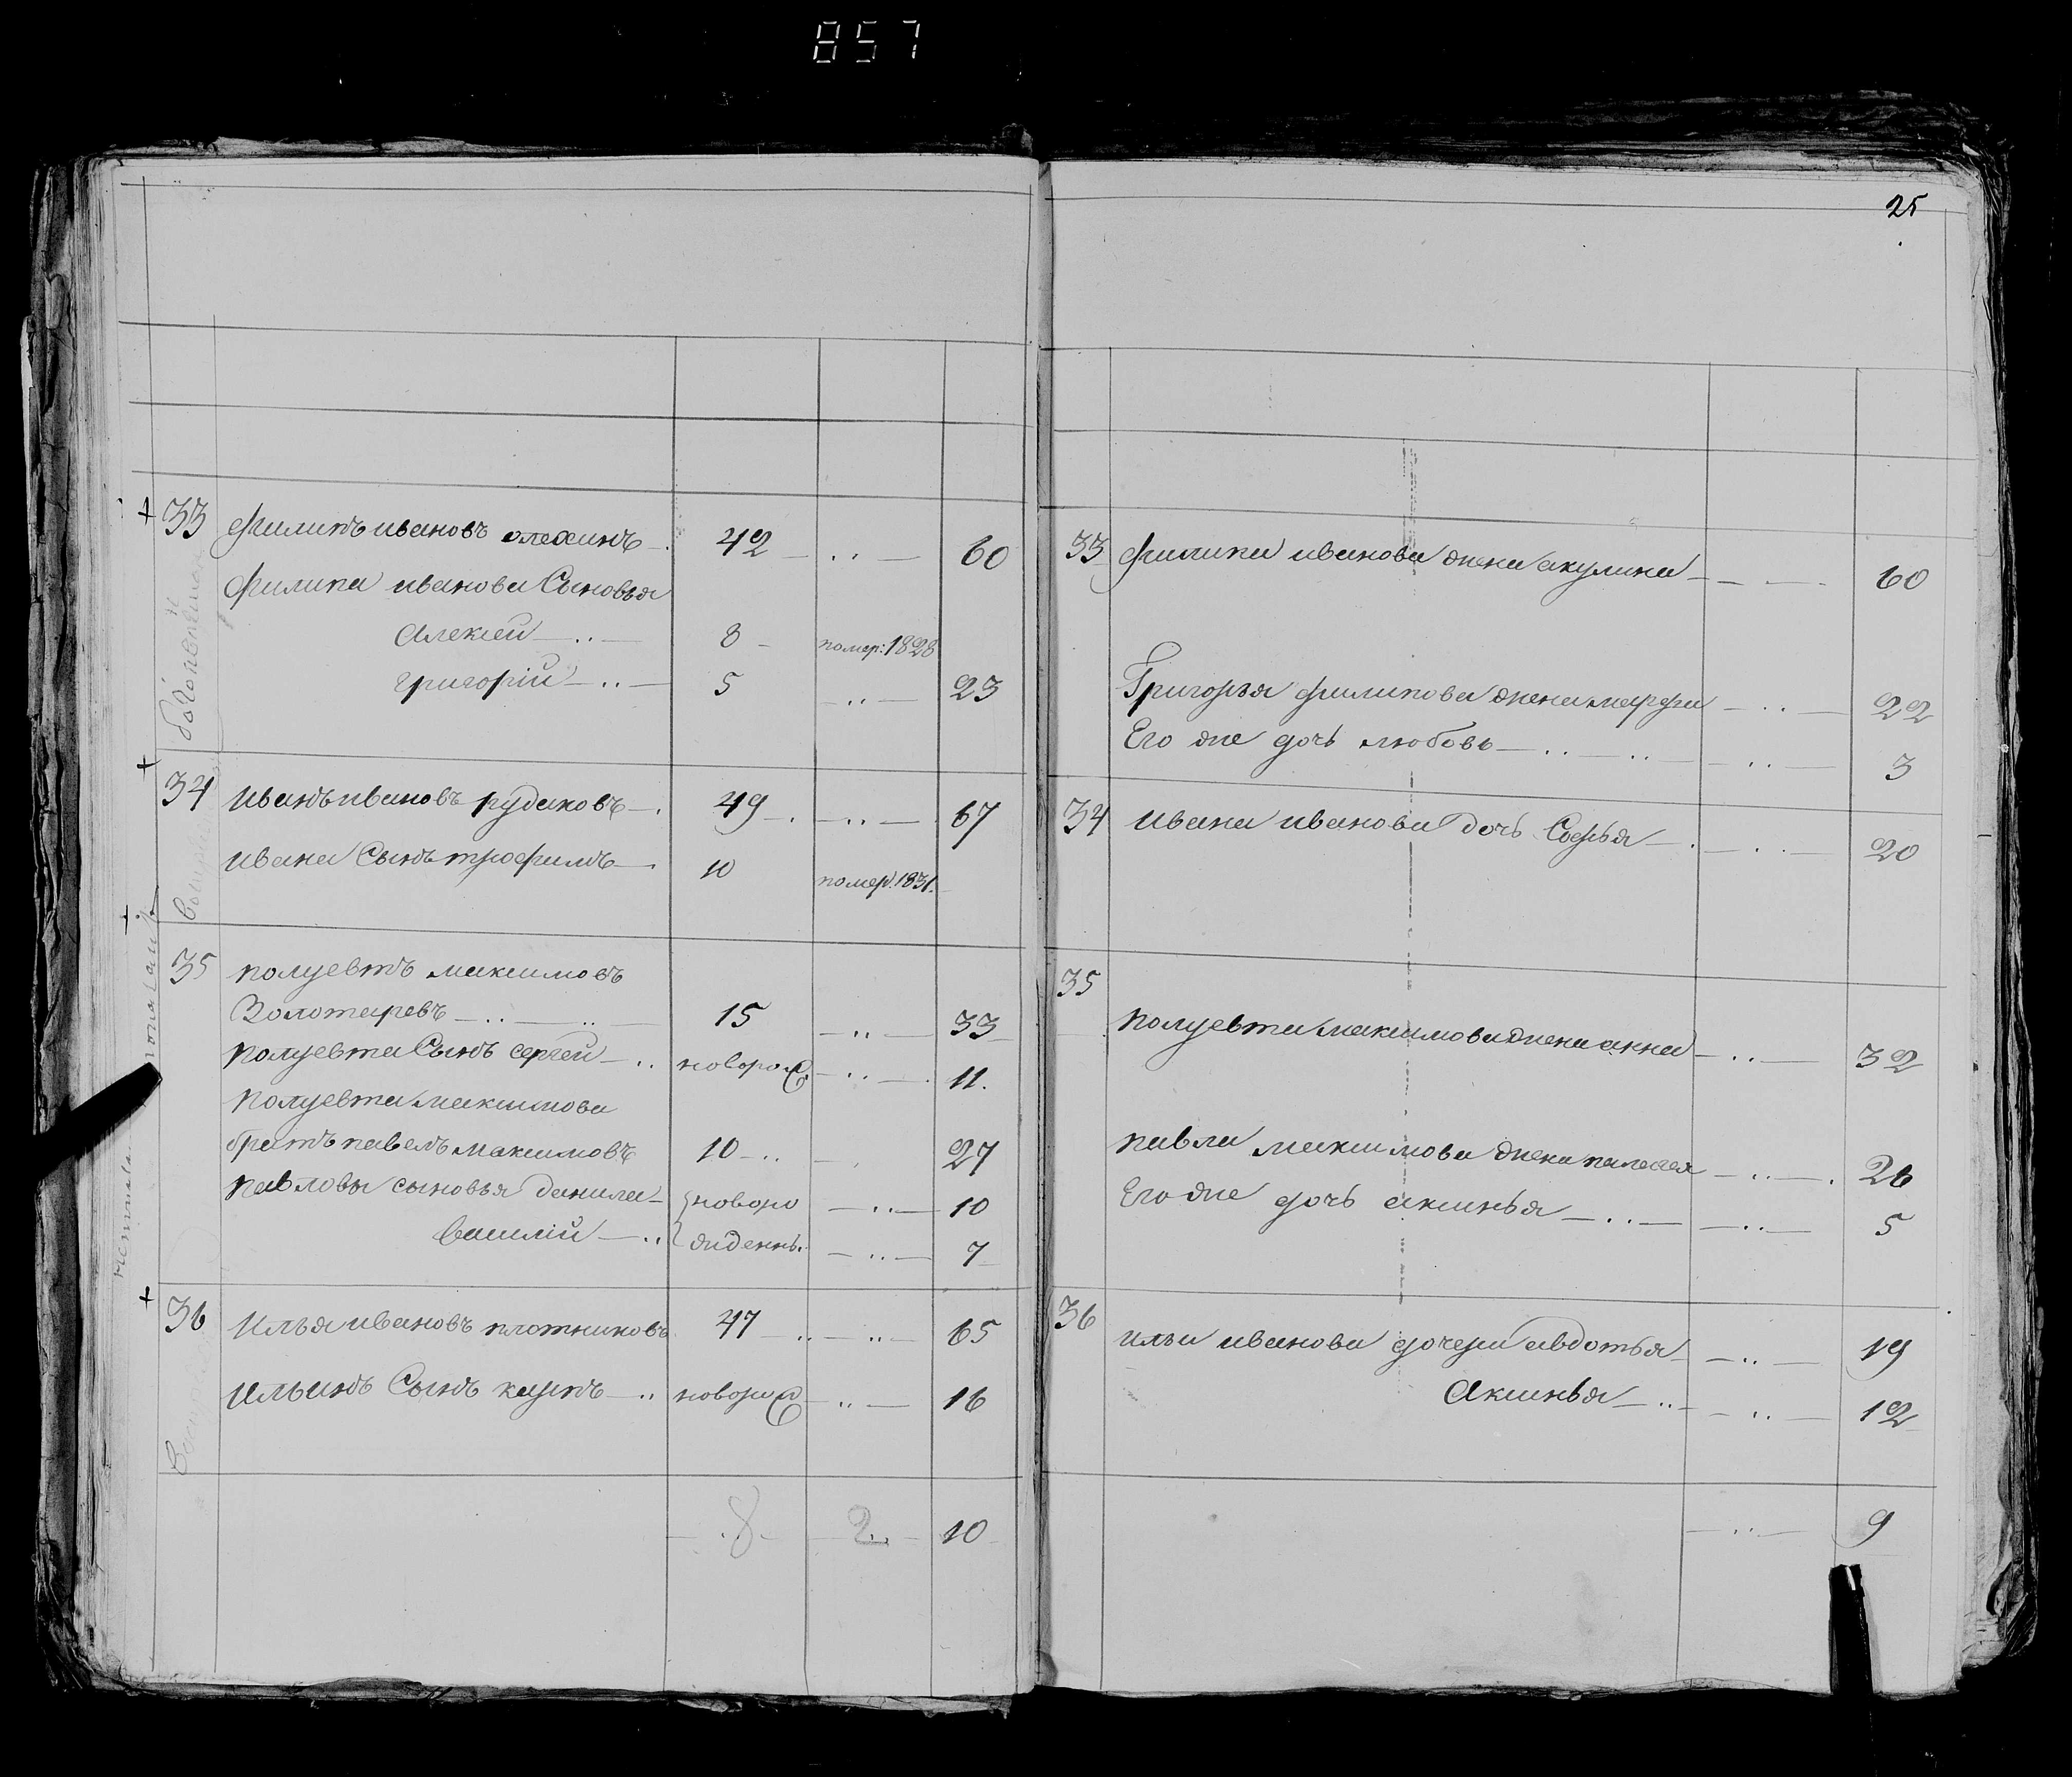 857
25
33 Филипъ ивановъ олехинъ 42 60
Филипа иванова Сыновья
Алексей 8 помер: 1828
григорiй 5 23
34 иванъ ивановъ рудаковъ 49 67
ивана Сынъ трофимъ 10 помер. 1831.
35 полуевтъ максимовъ
Золотаревъ 15 33
полуевта Сынъ сергей новорож 11.
полуевта максимова
братъ павелъ максимовъ 10 27
павловы сыновья данила новоро 10
василiй жденны. 7
36 илья ивановъ плотниковъ 47 65
ильинъ Сынъ карпъ новорож 16
8 2 10
33 филипа иванова жена акулина 60
Григорья филипова жена марфа 22
Его же дочь любовь 3
34 ивана иванова дочь Софья 20
35
полуевта максимова жена анна 32
павла максимова жена палагея 26
Его же дочь аксинья 5
36
ильи иванова дочери авдотья 19
Аксинья 12
9